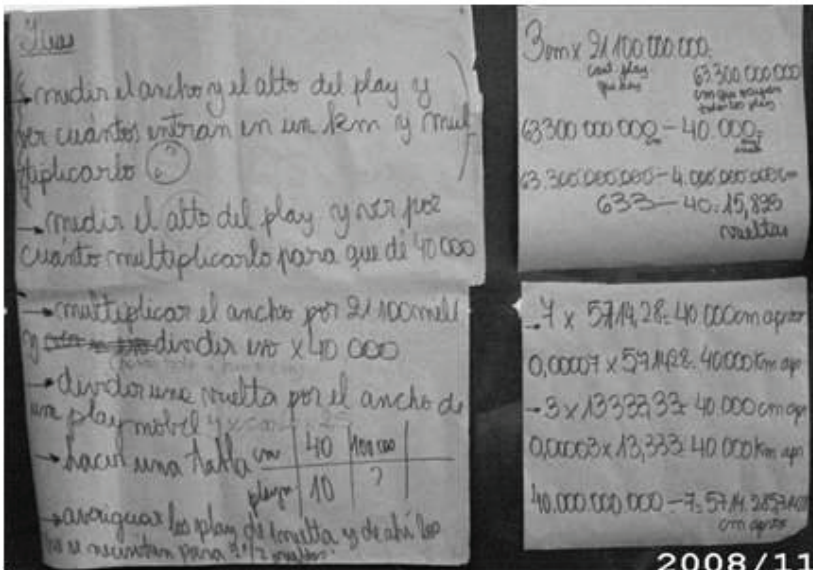 Ideas
→ medir el ancho y el alto del play y
ver cuántos entran en un km y mul
tiplicarlo
→ medir el alto del play y ver por
cuánto multiplicarlo para que dé 40000
→ multiplicar el ancho por 21100mill
y dividir eso x 40 000
→ dividir una vuelta por el ancho de
un play mobil
→ hacer una tabla cm 40 100 000
play 10 ?
→ averiguar los play de 1 vuelta y de ahí los
se necesitan para 3 1/2 vueltas.
3cm x 21 100 000 000:
cant. play que hay
63 300 000 000
63300 000 000 cm — 40.000:
63.300.000.000 — 4.000.000.000 cm
633 — 40: 15,825
vueltas
→ 7 x 5714,28: 40.000cm aprox
0,00007 x 5714,28: 40.000Km apr
→ 3 x 13333,33: 40.000 cm apr
0,00003 x 13,333: 40.000Km apr
40.000.000.000 — 7:
cm aprox
2008/11